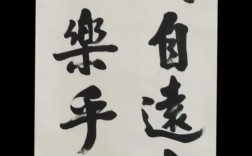 自遠
樂乎